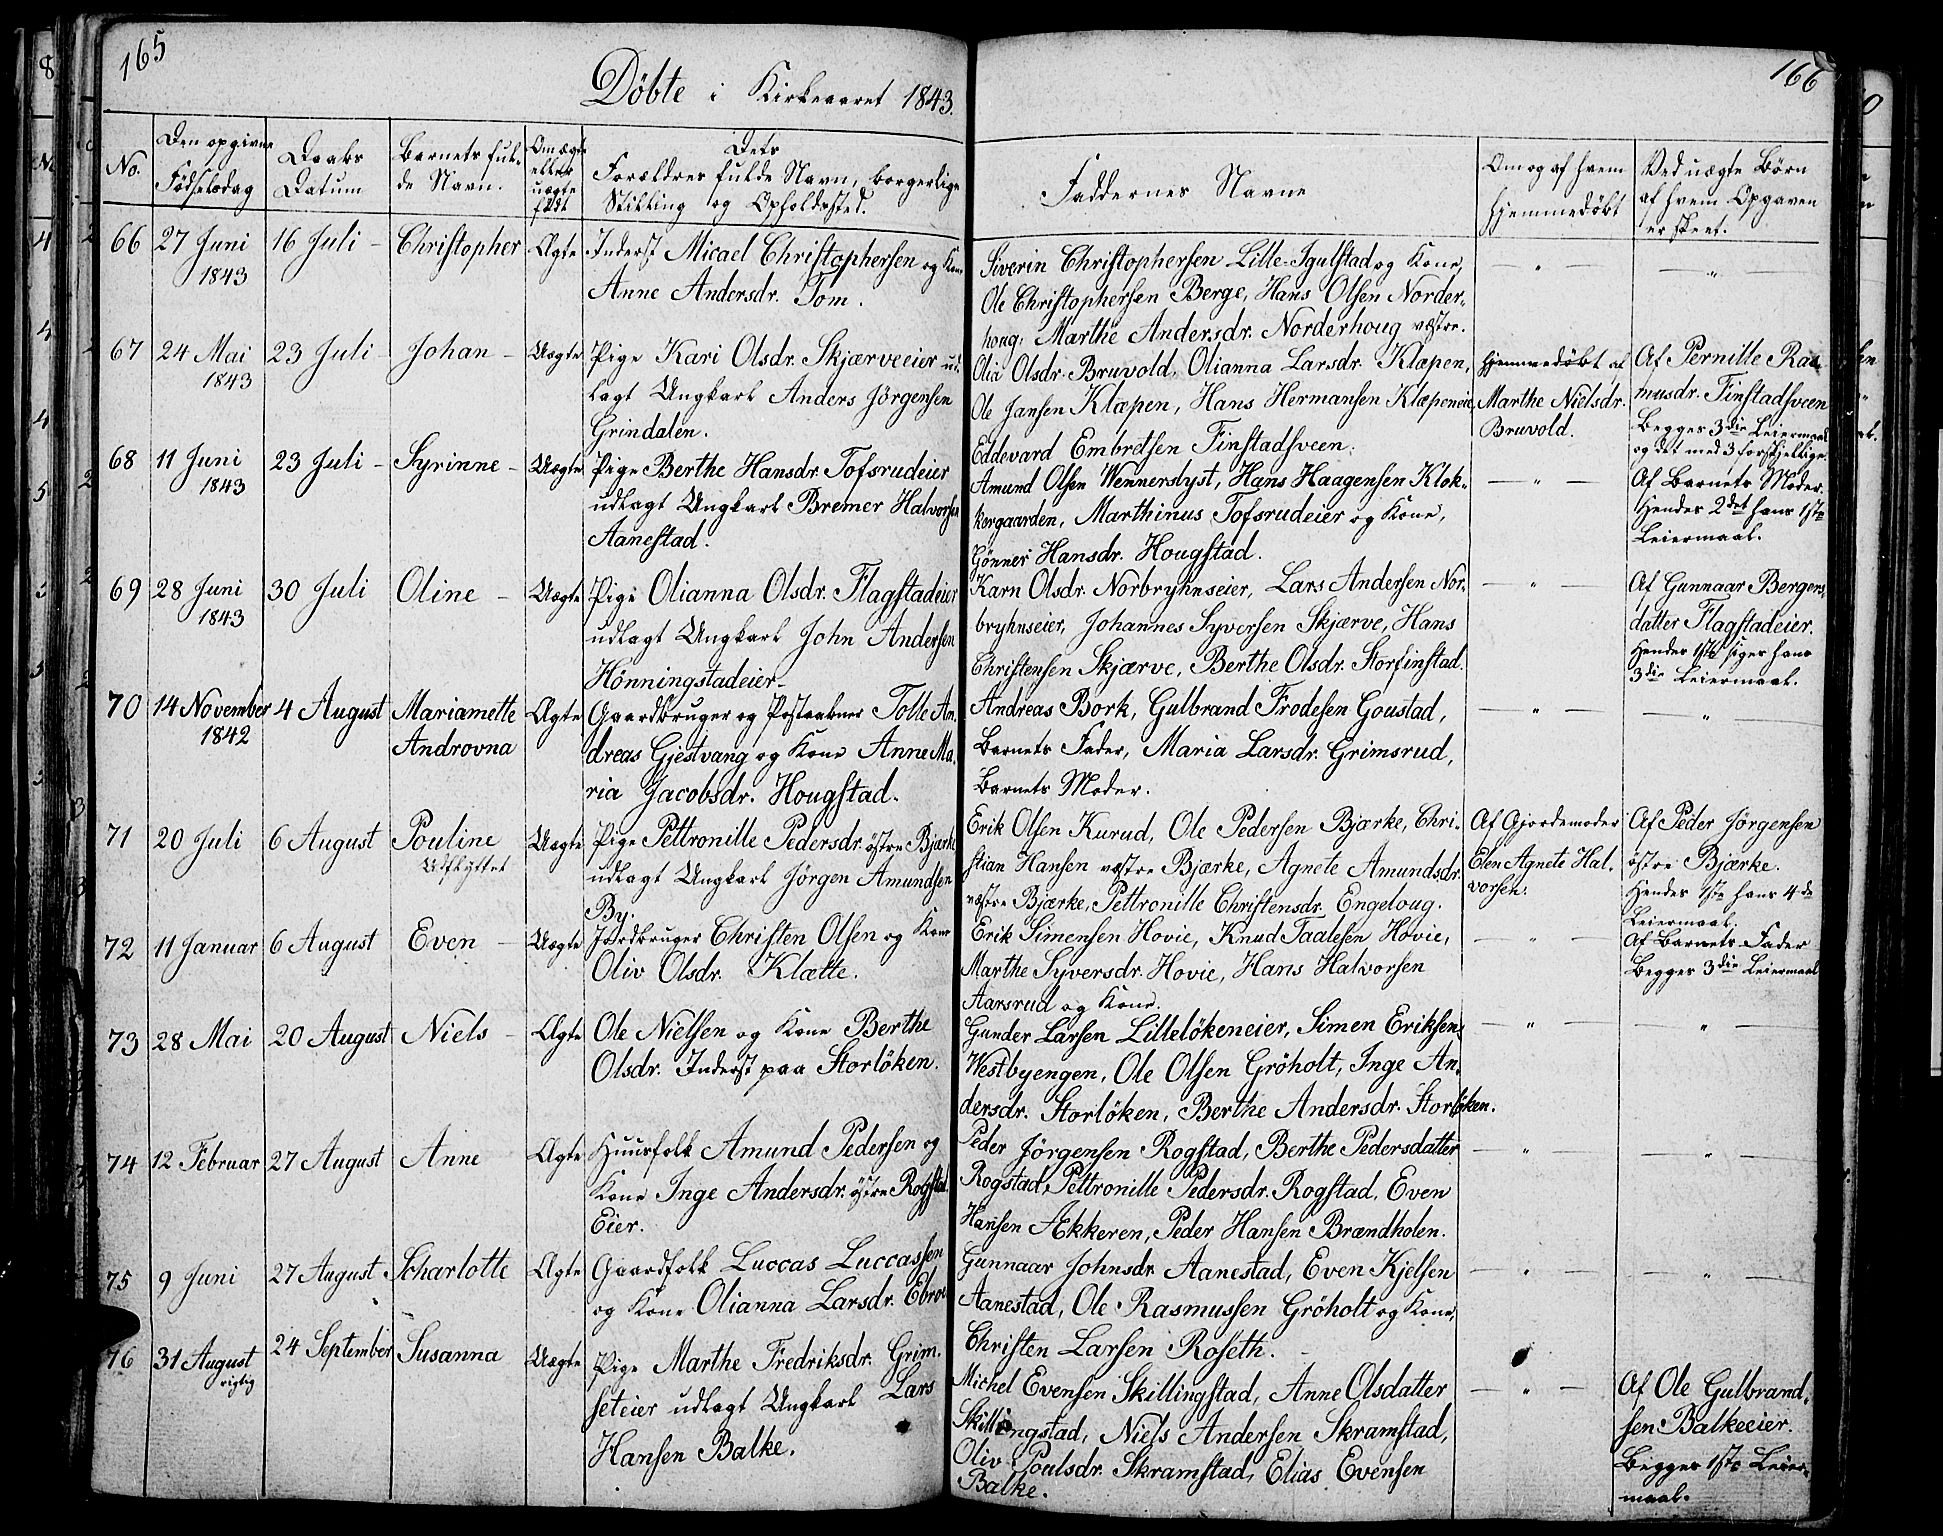 165
Döbte i Kirkeaaret 1843.
No.
Den opgivne
Födselsdag
Daabs
Datum
Barnets ful-
de Navn.
Om ægte
eller
uægte
födt
Dets
Forældres fulde Navn, borgerlige
Stilling og Opholdssted.
66 27 Juni
1843
16 Juli -
Christopher
Ægte
Inderst Micael Christophersen og Kone
Anne Andersdr. Tom.
67 24 Mai
1843
23 Juli -
Johan -
Uægte
Pige Kari Olsdr. Skjærveeier ud-
lagt Ungkarl Anders Jörgensen
Grindalen.
68 11 Juni
1843
23 Juli -
Syrinne -
Uægte
Pige Berthe Hansdr. Tofsrudeier
udlagt Ungkarl Bremer Halvorsen
Aanestad.
69 28 Juni
1843
30 Juli
Oline -
Uægte
Pige Olianna Olsdr. Flagstadeier
udlagt Ungkarl John Andersen
Hönningstadeier-
70 14 November
1842
4 August
Mariamette
Androvna
Ægte
Gaardbruger og Postaabner Tolle An-
dreas Gjestvang og Kone Anne Ma-
ria Jacobsdr. Hougstad.
71 20 Juli
6 August
Pouline
Udflyttet
Uægte
Pige Pettronille Pedersdr. östre Bjærke
udlagt Ungkarl Jörgen Amundsen
By.
72 11 Januar
6 August
Even -
Uægte
Jordbruger Christen Olsen og Kone
Oliv Olsdr. Klætte.
73 28 Mai
20 August
Niels -
Ægte
Ole Nielsen og Kone Berthe
Olsdr. Inderst paa Storlöken.
74 12 Februar
27 August
Anne
Ægte
Huusfolk Amund Pedersen og
Kone Inge Andersdr. östre Rogstad
Eier.
75 9 Juni
27 August
Scharlotte
Ægte
Gaardfolk Luccas Luccassen
og Kone Olianna Larsdr. Ebroe
76 31 August
rigtig
24 September
Susanna
Uægte
Pige Marthe Fredriksdr. Grim-
seteier udlagt Ungkarl Lars
Hansen Balke.
166
Faddernes Navne
Om og af hvem
hjemmedöbt
Ved uægte Börn
af hvem Opgaven
er skeet.
Siverin Christophersen Lille-Igulstad og Kone,
Ole Christophersen Berge, Hans Olsen Norder-
houg, Marthe Andersdr. Norderhoug vestre.
- " -
- " -
Olia Olsdr. Bruvold, Olianna Larsdr. Klæpen,
Ole Jansen Klæpen, Hans Hermansen Klæpeneie,
Eddevard Embretsen Finstadsveen.
Hjemmedöbt af
Marthe Nielsdr.
Bruvold.
Af Pernille Ras-
musdr. Finstadsveen
Begges 3die Leiermaal
og det med 3 forskjellige.
Amund Olsen Wennerslyst, Hans Haagensen Klok-
kergaarden, Marthinus Tofsrudeier og Kone,
Gönner Hansdr. Hougstad.
- " -
Af Barnets Moder.
Hendes 2det hans 1ste
Leiermaal.
Karn Olsdr. Norbryhnseier, Lars Andersen Nor-
bryhnseier, Johannes Syversen Skjærve, Hans
Christensen Skjærve, Berthe Olsdr. Storfinstad.
- " -
Af Gunnaar Bergers-
datter Flagstadeier.
Hendes 1ste siger hans
3die Leiermaal.
Andreas Bork, Gulbrand Frodesen Goustad,
Barnets Fader, Maria Larsdr. Grimsrud,
Barnets Moder.
- " -
- " -
Erik Olsen Kurud, Ole Pedersen Bjærke, Chri-
stian Hansen vestre Bjærke, Agnete Amundsdr.
vestre Bjærke, Pettronille Christensdr. Engeloug.
Af Gjordemoder
Elen Agnete Hal-
vorsen.
Af Peder Jörgensen
östre Bjærke.
Hendes 1ste hans 4de
Leiermaal.
Erik Simensen Hovie, Knud Taalesen Hovie,
Marthe Syversdr. Hovie, Hans Halvorsen
Aarsrud og Kone.
- " -
Af Barnets Fader
Begges 3die Leiermaal
Gunder Larsen Lillelökeneier, Simen Eriksen
Westbyengen, Ole Olsen Gröholt, Inge An-
dersdr. Storlöken, Berthe Andersdr. Storlöken.
- " -
- " -
Peder Jörgensen Rogstad, Berthe Pedersdatter
Rogstad, Pettronille Pedersdr. Rogstad, Even
Hansen Ækkeren, Peder Hansen Brændholen.
- " -
- " -
Gunnaar Johnsdr. Aanestad, Even Kjelsen
Aanestad, Ole Rasmussen Gröholt og Kone,
Christen Larsen Roseth.
- " -
- " -
Michel Evensen Skillingstad, Anne Olsdatter
Skillingstad, Niels Andersen Skramstad,
Oliv Poulsdr. Skramstad, Elias Evensen
Balke.
- " -
Af Ole Gulbrand-
sen Balkeeier.
Begges 1ste Leier-
maal.